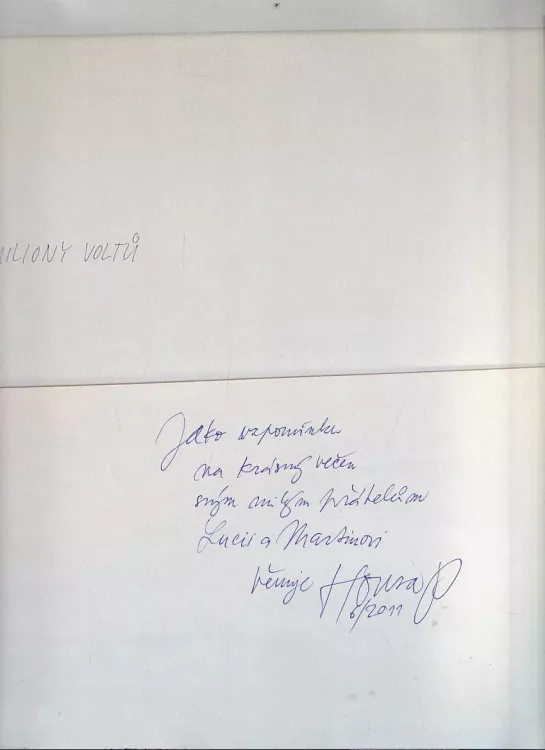 MILIONY VOLTŮ
Jako vzpomínku
na krásný večer
svým milým přátelům
Lucii a Martinovi
věnuje
6/2011